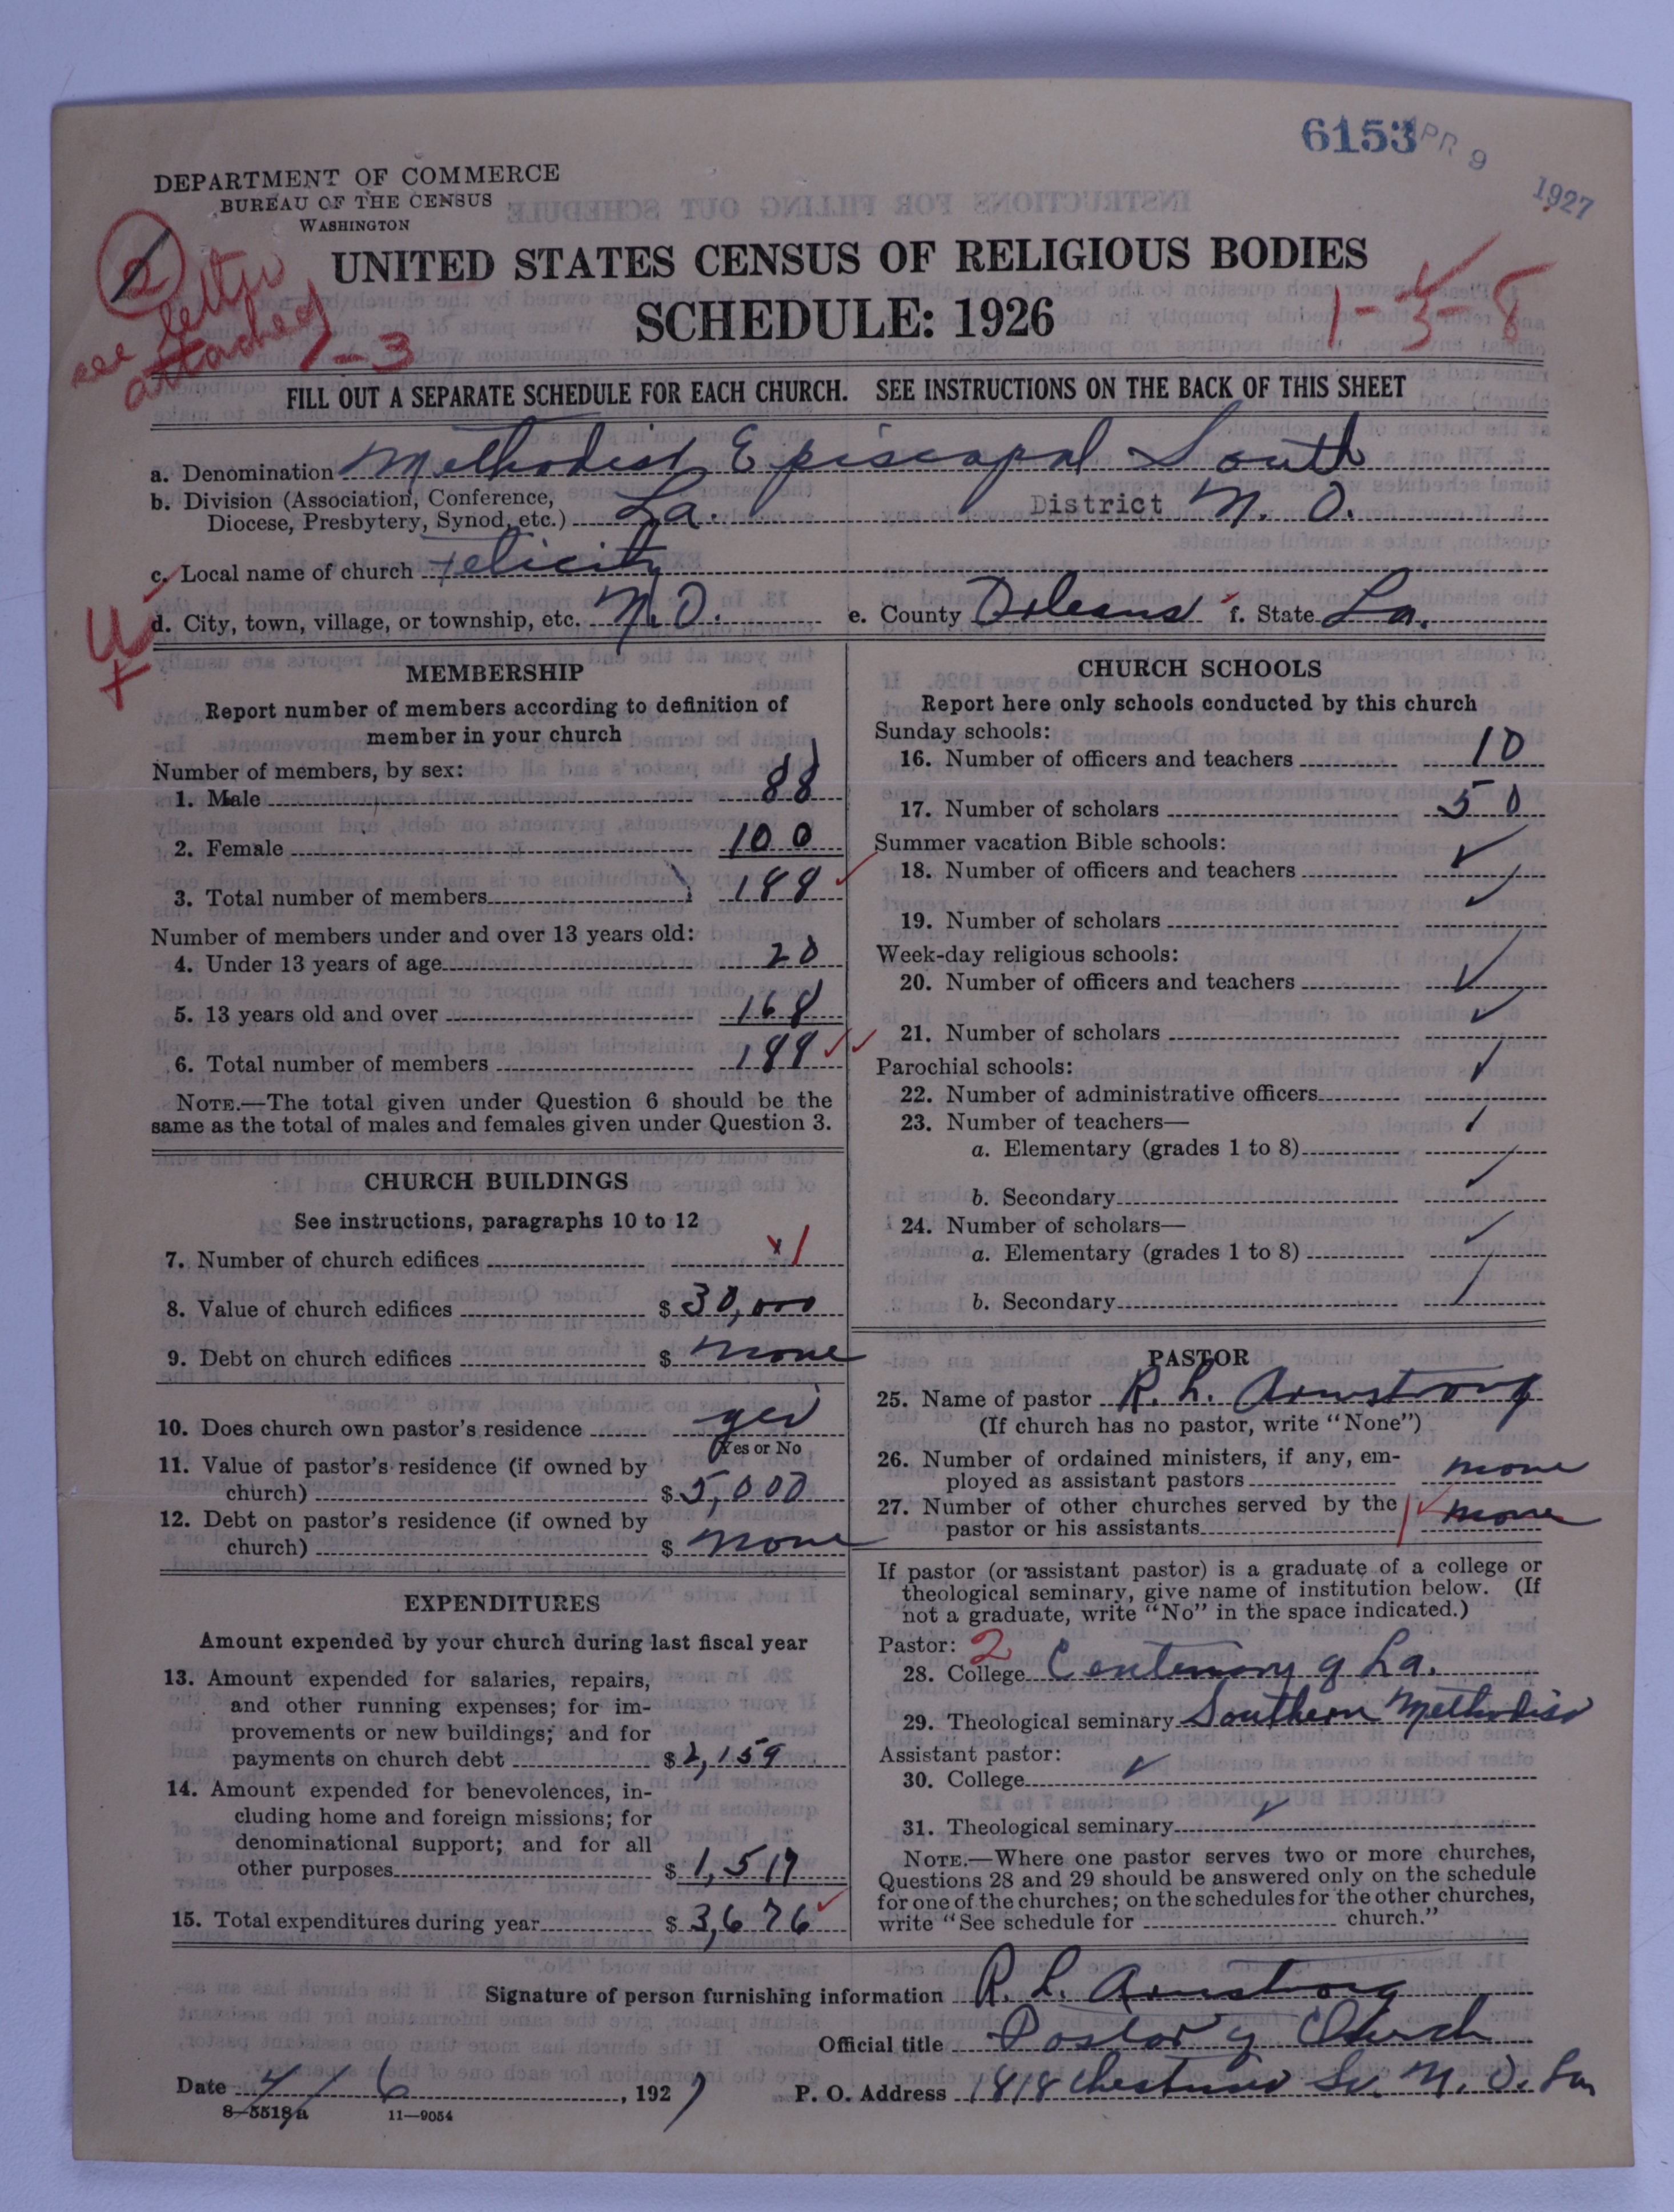 6153
APR 9 1927
DEPARTMENT OF COMMERCE
BUREAU OF THE CENSUS
WASHINGTON
UNITED STATES CENSUS OF RELIGIOUS BODIES
SCHEDULE: 1926
2
see letter
attached
1-3
1-3-8
FILL OUT A SEPARATE SCHEDULE FOR EACH CHURCH. SEE INSTRUCTIONS ON THE BACK OF THIS SHEET
a. Denomination Methodist Episcopal South
b. Division (Association, Conference,
Diocese, Presbytery, Synod, etc.) La. District N. O.
c. Local name of church Felicity
U
d. City, town, village, or township, etc. N. O. e. County Orleans f. State La.
MEMBERSHIP
Report number of members according to definition of
member in your church
Number of members, by sex:
1. Male 88
2. Female 100
3. Total number of members 188
Number of members under and over 13 years old:
4. Under 13 years of age 20
5. 13 years old and over 168
6. Total number of members 188
NOTE.—The total given under Question 6 should be the
same as the total of males and females given under Question 3.
CHURCH BUILDINGS
See instructions, paragraphs 10 to 12
7. Number of church edifices 1
8. Value of church edifices $ 30,000
9. Debt on church edifices $ none
10. Does church own pastor's residence yes
Yes or No
11. Value of pastor's residence (if owned by
church) $ 5,000
12. Debt on pastor's residence (if owned by
church) $ none
EXPENDITURES
Amount expended by your church during last fiscal year
13. Amount expended for salaries, repairs,
and other running expenses; for im-
provements or new buildings; and for
payments on church debt $ 2,159
14. Amount expended for benevolences, in-
cluding home and foreign missions; for
denominational support; and for all
other purposes $ 1,517
15. Total expenditures during year $ 3,676
CHURCH SCHOOLS
Report here only schools conducted by this church
Sunday schools:
16. Number of officers and teachers 10
17. Number of scholars 50
Summer vacation Bible schools:
18. Number of officers and teachers
19. Number of scholars
Week-day religious schools:
20. Number of officers and teachers
21. Number of scholars
Parochial schools:
22. Number of administrative officers
23. Number of teachers—
a. Elementary (grades 1 to 8)
b. Secondary
24. Number of scholars—
a. Elementary (grades 1 to 8)
b. Secondary
PASTOR
25. Name of pastor R. L. Armstrong
(If church has no pastor, write "None")
26. Number of ordained ministers, if any, em-
ployed as assistant pastors none
27. Number of other churches served by the
pastor or his assistants 1 none
If pastor (or assistant pastor) is a graduate of a college or
theological seminary, give name of institution below. (If
not a graduate, write "No" in the space indicated.)
Pastor: 2
28. College Centenary of La.
29. Theological seminary Southern Methodist
Assistant pastor:
30. College
31. Theological seminary
NOTE.—Where one pastor serves two or more churches,
Questions 28 and 29 should be answered only on the schedule
for one of the churches; on the schedules for the other churches,
write "See schedule for church."
Signature of person furnishing information R. L. Armstrong
Official title Pastor of Church
Date 4/6, 1927 P. O. Address 1818 Chestnut St. N. O. La
8-5518a 11—9054